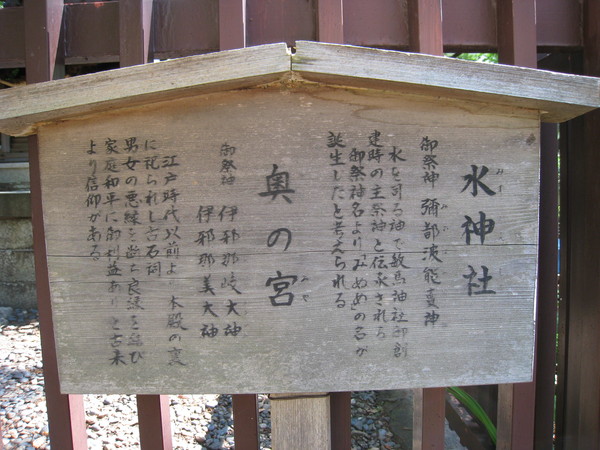 水神社
御祭神 彌都波能賣神
水を司る神で敏馬神社御創
建時の主祭神と伝承される
御祭神名よりみぬめの名が
誕生したと考えられる
奥の宮
御祭神 伊邪那岐大神
伊邪那美大神
江戸時代以前より本殿の裏
に祀られし古石祠
男女の悪縁を断ち良縁を結び
家庭和平に御利益ありと古来
より信仰がある